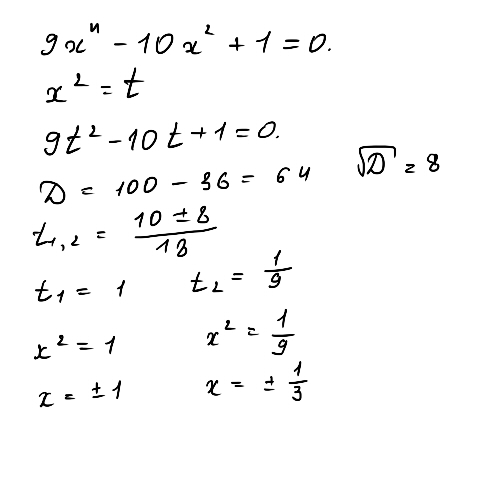 9x⁴ - 10x² + 1 = 0.
x² = t
9t² - 10t + 1 = 0.
D = 100 - 36 = 64 √D = 8
t₁,₂ = (10 ± 8)/18
t₁ = 1 t₂ = 1/9
x² = 1 x² = 1/9
x = ±1 x = ± 1/3